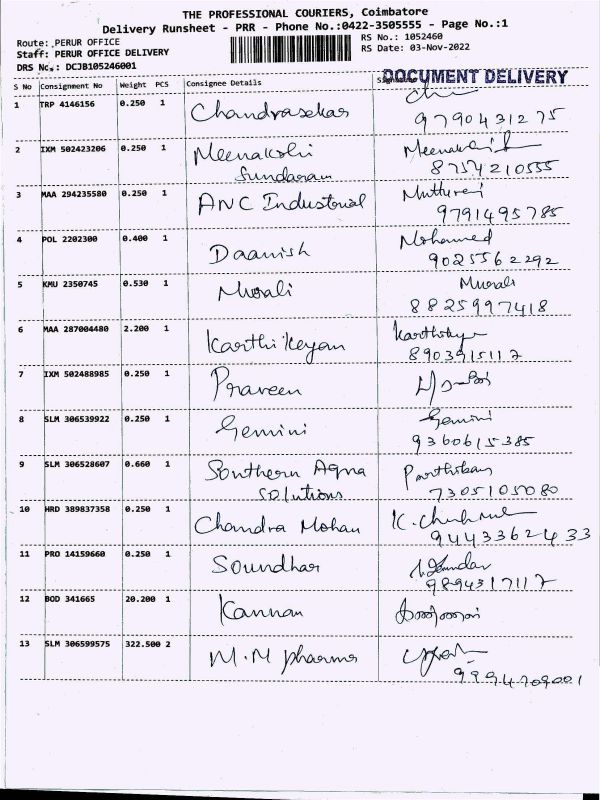 THE PROFESSIONAL COURIERS, Coimbatore
Delivery Runsheet - PRR - Phone No.:0422-3505555 - Page No.:1
Route: PERUR OFFICE
RS No.: 1052460
Staff: PERUR OFFICE DELIVERY
RS Date: 03-Nov-2022
DRS No.: DCJB105246001
DOCUMENT DELIVERY
S No Consignment No Weight PCS Consignee Details
1 TRP 4146156 0.250 1 Chandrasekar
9790431275
2 IXM 502423206 0.250 1 Meenakshi Meenakshi
Sundaram 8754210555
3 MAA 294235580 0.250 1 ANC Industorial
9791495785
4 POL 2202300 0.400 1 Daanish Mohamed
9025562292
5 KMU 2350745 0.530 1 Murali Murali
8825997418
6 MAA 287004480 2.200 1 Karthikeyan
8903915117
7 IXM 502488985 0.250 1 Praveen
8 SLM 306539922 0.250 1 Gemini Gemini
9360615385
9 SLM 306528607 0.660 1 Southern Aqua Parthiban
Solutions 7305105080
10 HRD 389837358 0.250 1 Chandra Mohan
9443362433
11 PRO 14159660 0.250 1 Soundhar
9894317117
12 BOD 341665 20.200 1 Kannan
13 SLM 306599575 322.500 2 M.M pharma
9994709001